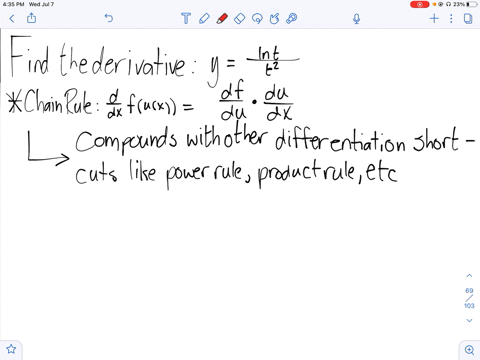 4:35 PM Wed Jul 7
23%
Find the derivative: y = ln t / t²
*Chain Rule: d/dx f(u(x)) = df/du · du/dx
Compounds with other differentiation short-
cuts like power rule, product rule, etc
69
/
103